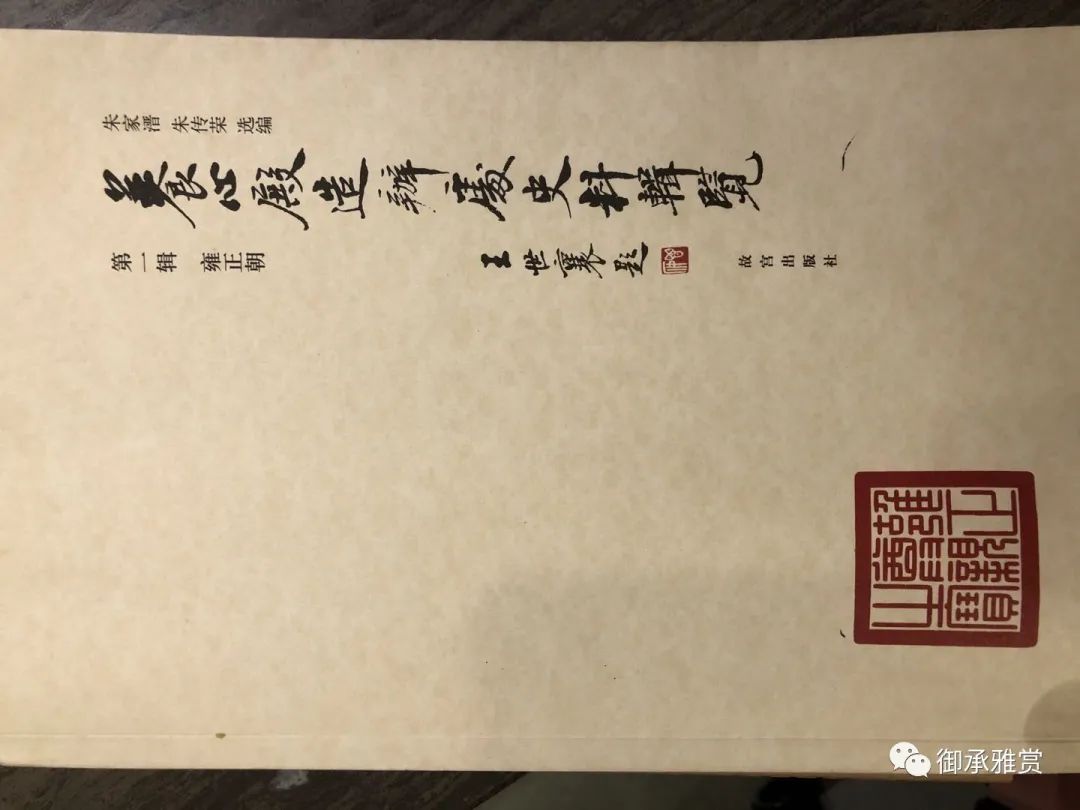 朱家溍 朱传荣 选编
養心殿造辦處史料輯覽
第一辑 雍正朝
王世襄題
故宫出版社
御承雅赏